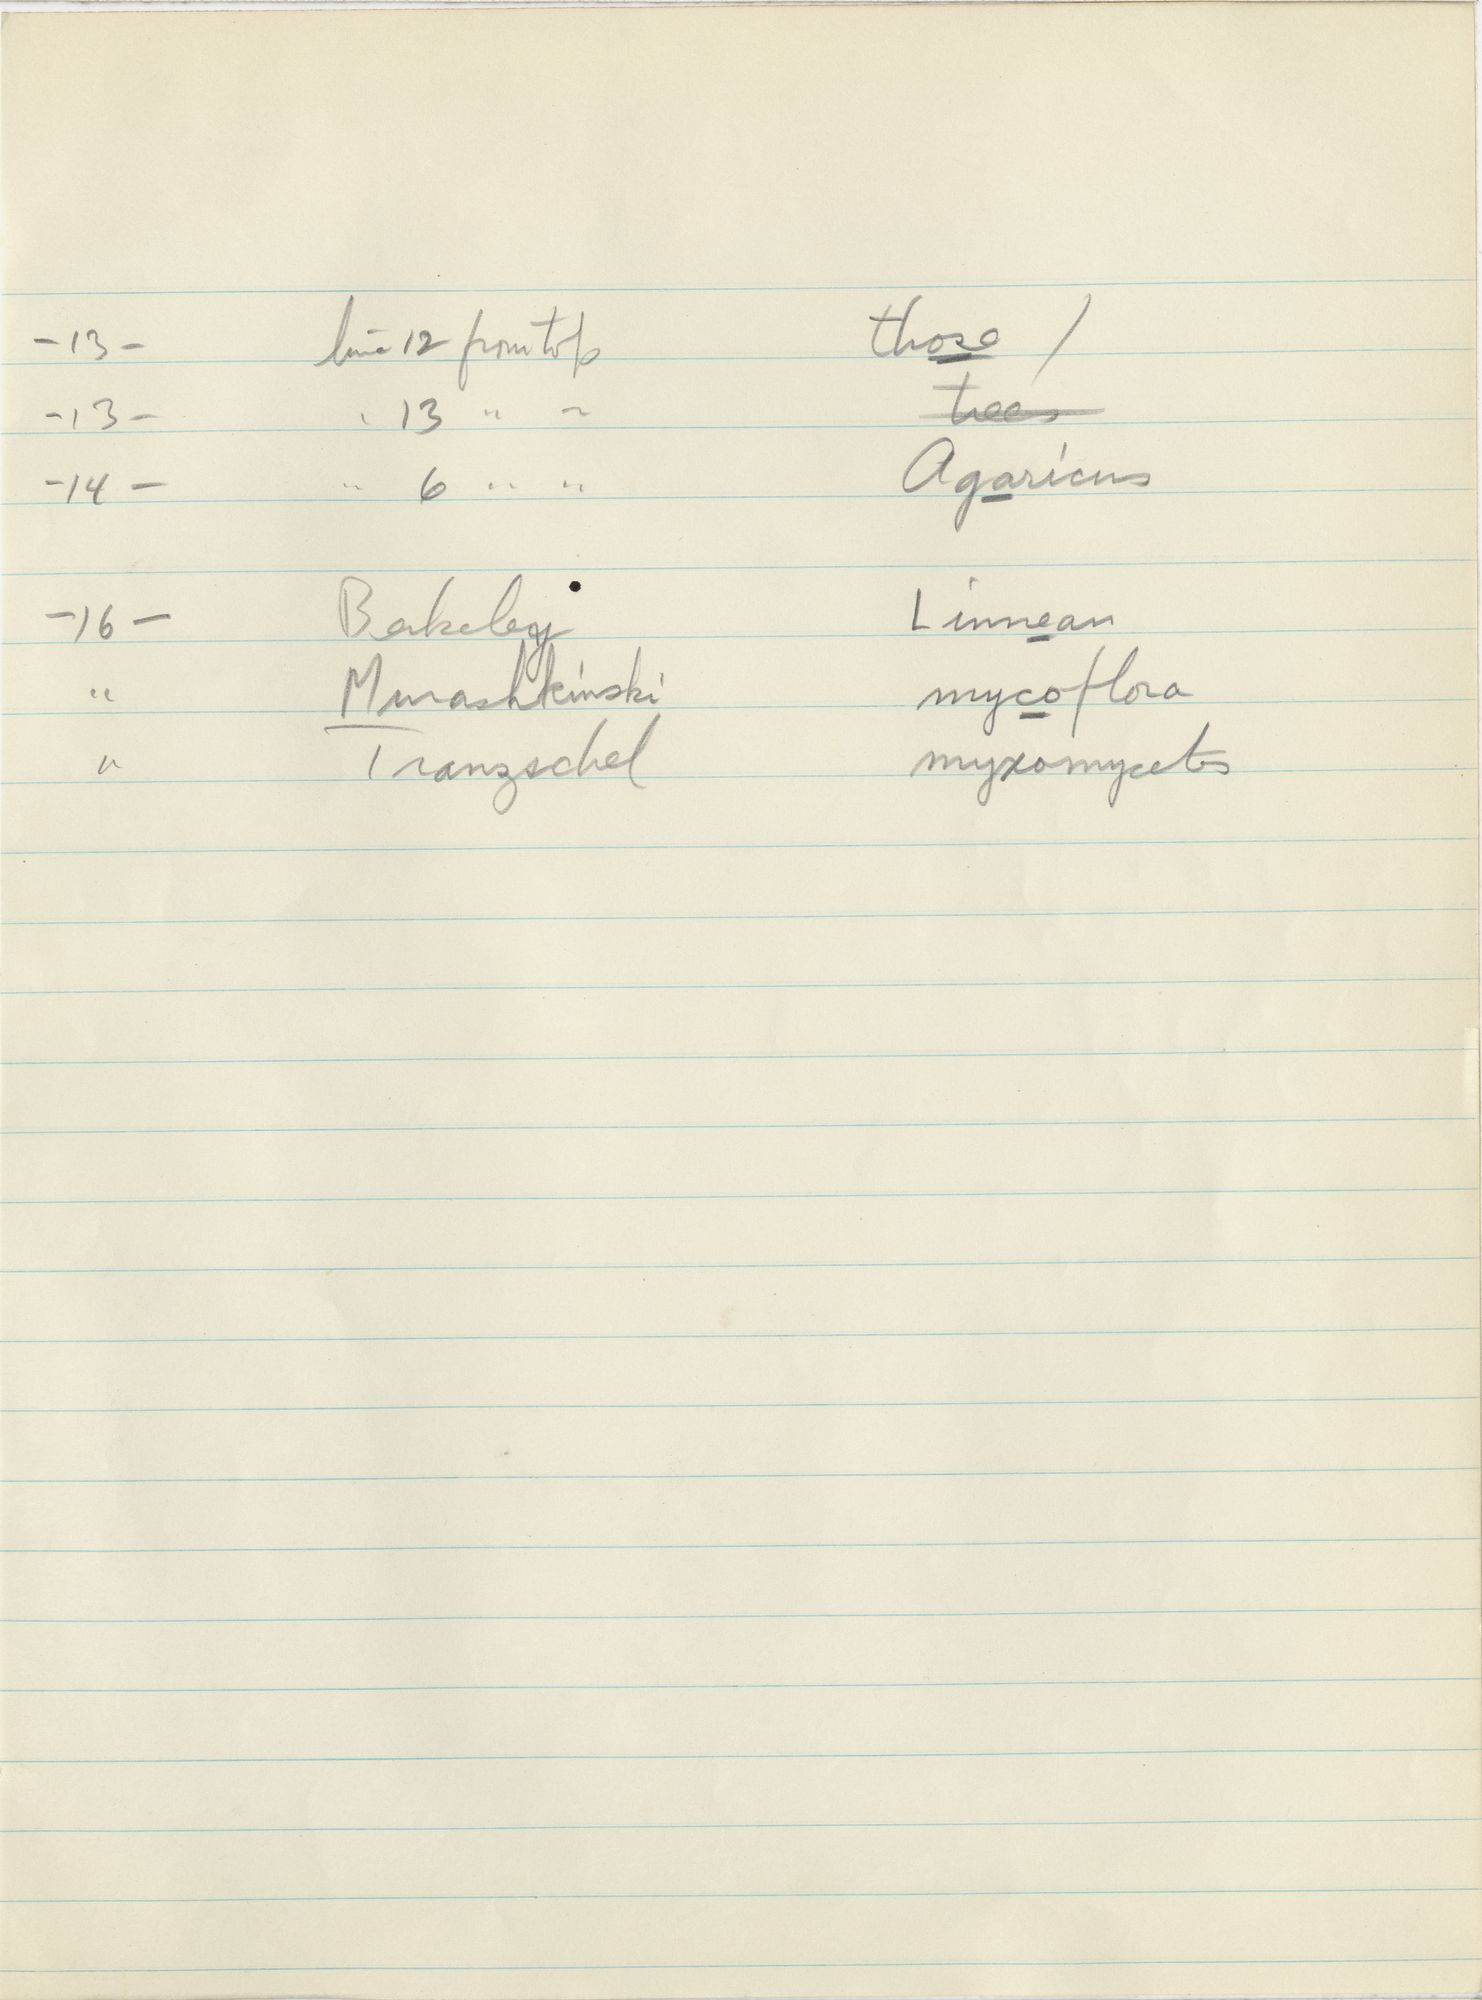 -13- line 12 from top those /
-13- " 13 " " trees
-14- " 6 " " Agaricus
-16- Berkeley Linnean
" Murashkinski mycoflora
" Tranzschel myxomycetes